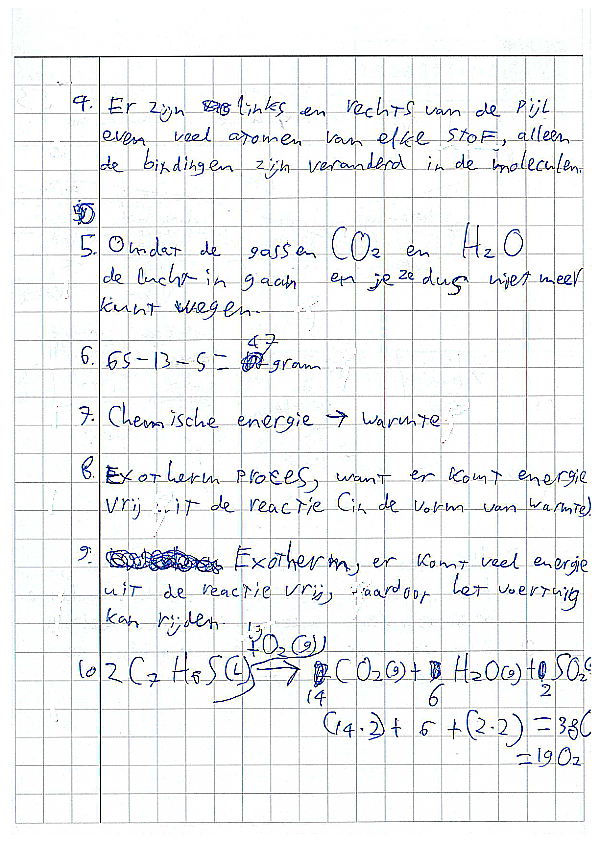 4. Er zijn links en rechts van de pijl
even veel atomen van elke stof, alleen
de bindingen zijn veranderd in de moleculen.
5. Omdat de gassen CO₂ en H₂O
de lucht in gaan en je ze dus niet meer
kunt wegen.
6. 65-13-5= 47 gram
7. Chemische energie → warmte
8. Exotherm proces, want er komt energie
vrij uit de reactie (in de vorm van warmte)
9. Exotherm, er komt veel energie
uit de reactie vrij, waardoor het voertuig
kan rijden.
19
+O₂(g)
10 2 C₇ H₆S(l) → CO₂(g)+ H₂O(g)+ SO₂
14 6 2
(14·2)+ 6 +(2·2) = 38
=19O₂